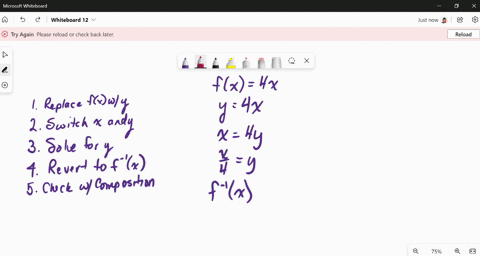 Microsoft Whiteboard
Whiteboard 12
Just now
Try Again Please reload or check back later.
Reload
f(x) = 4x
1. Replace f(x) w/ y
y = 4x
2. Switch x and y
x = 4y
3. Solve for y
x/4 = y
4. Revert to f⁻¹(x)
f⁻¹(x)
5. Check w/ Composition
75%